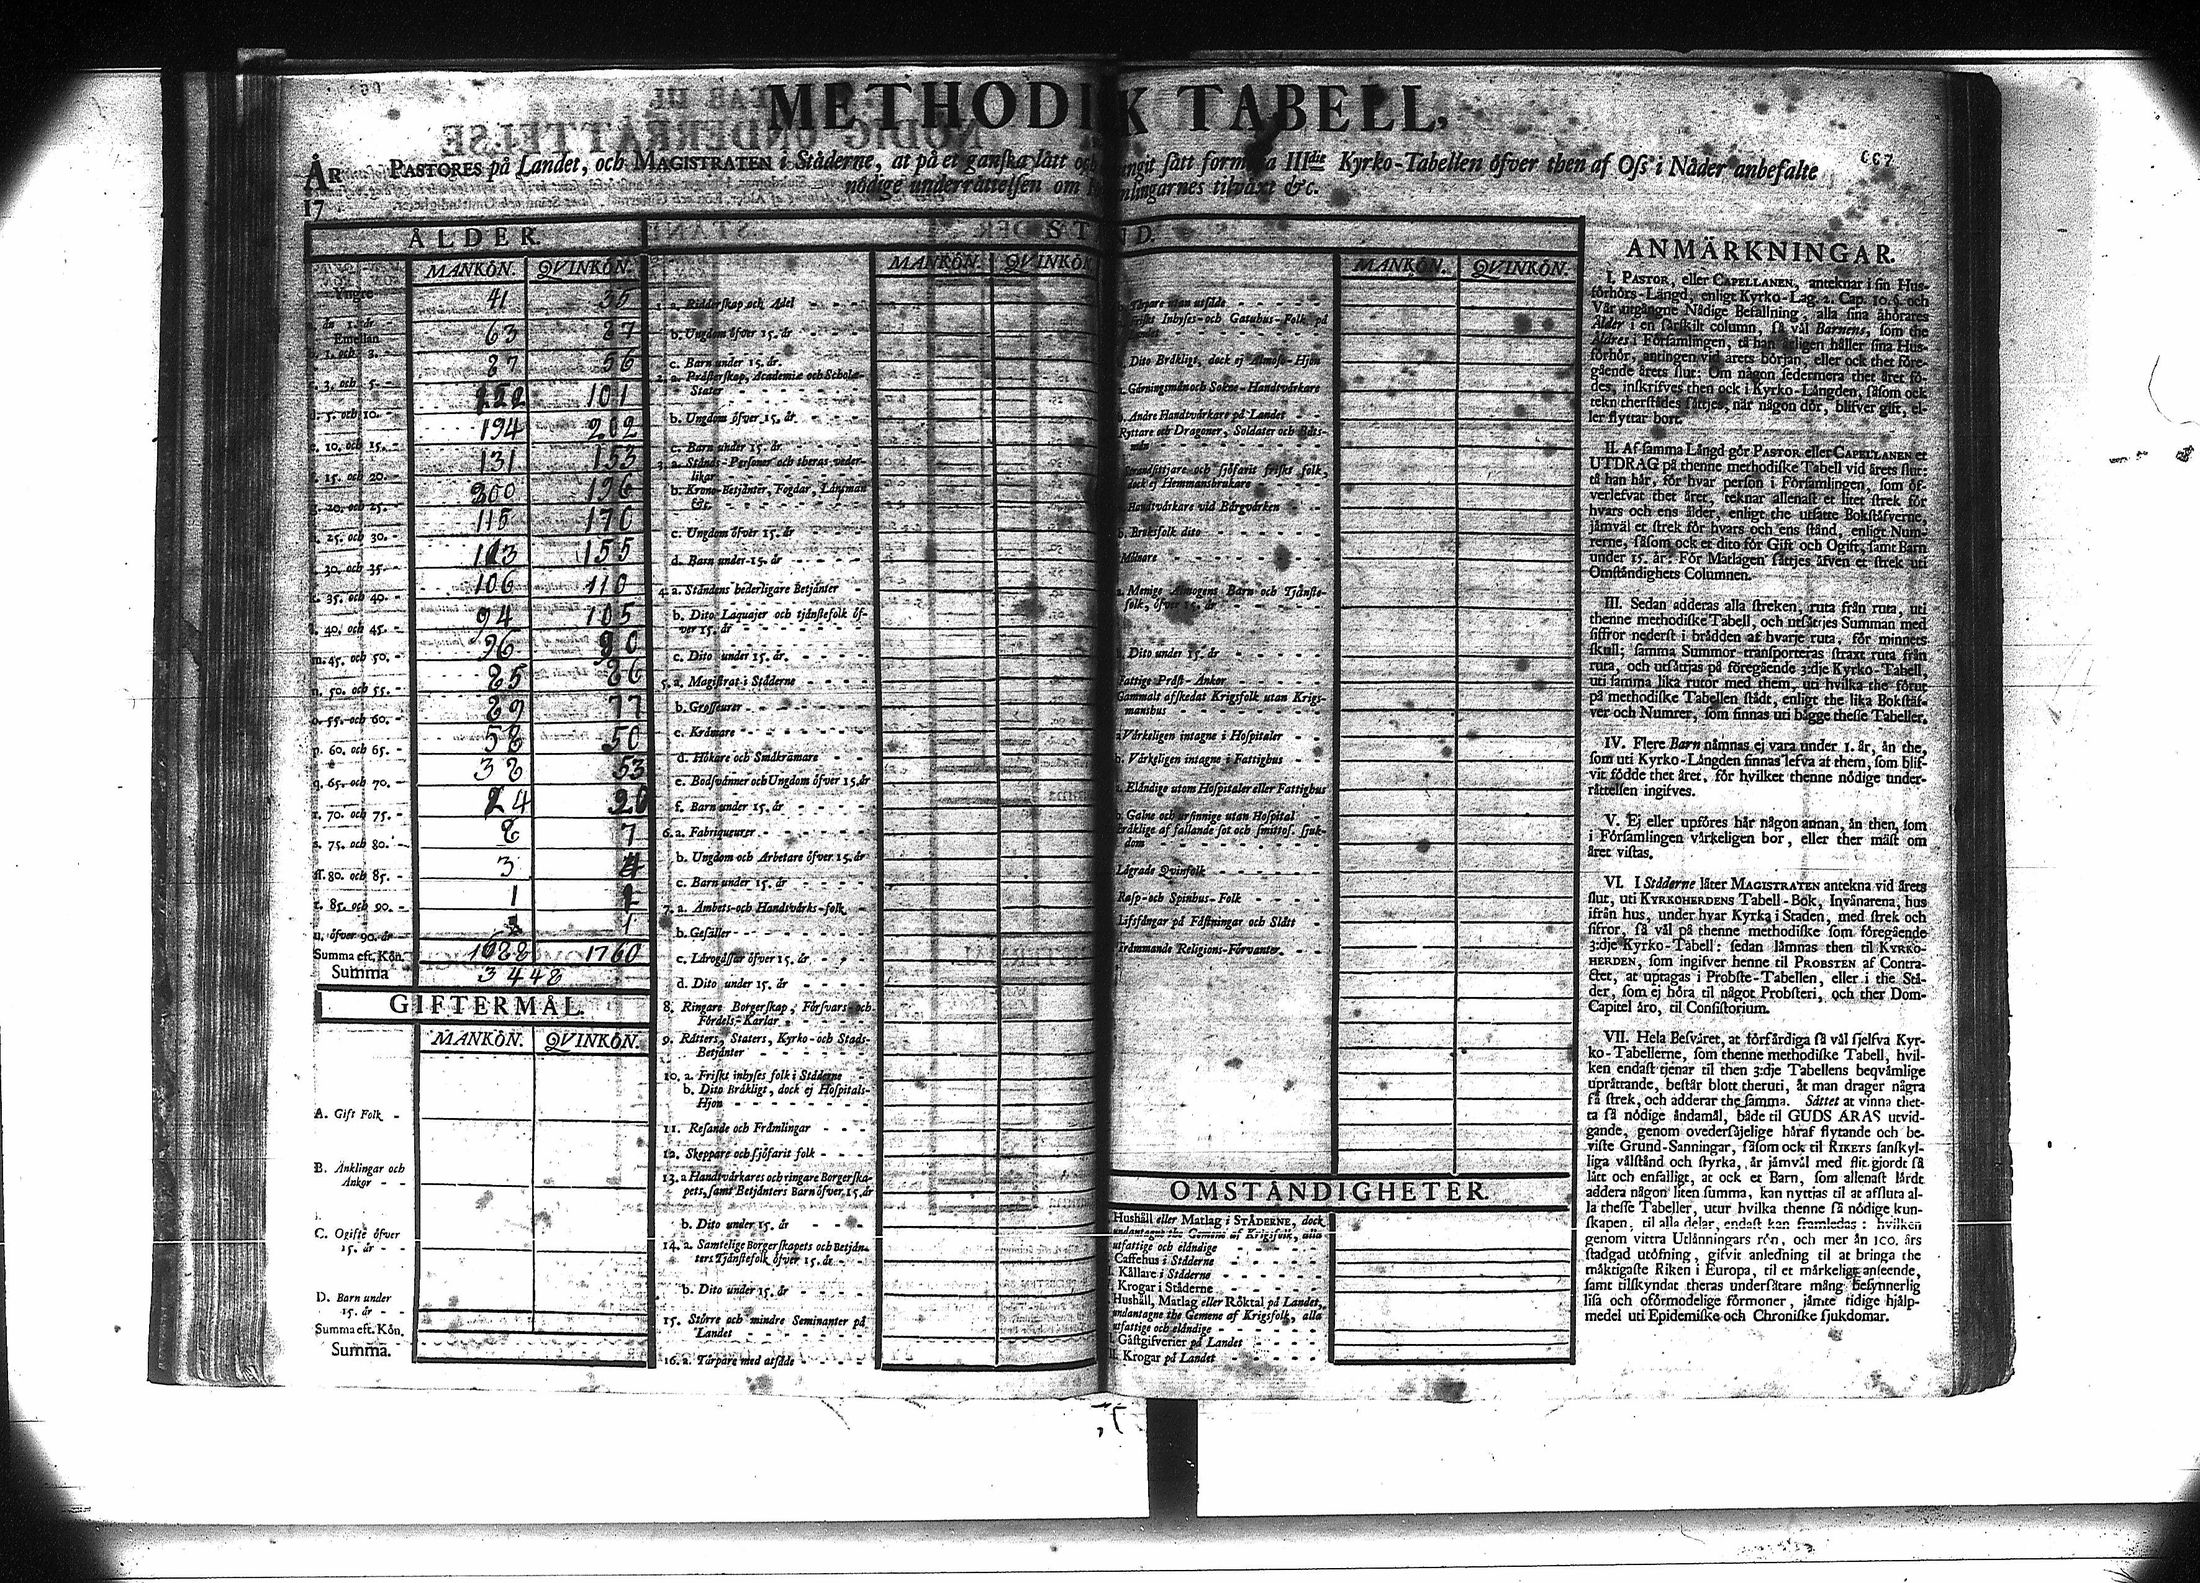 METHODISK TABELL,
ÅR PASTORES på Landet, och MAGISTRATEN i Ståderne, at på et ganska lått och sått formera IIIdie Kyrko-Tabellen öfver then af Oss i Nåder anbefalte
17 nödige underråttelsen om Församlingarnes tilväxt &c.
ÅLDER.
MANKÖN. QVINKÖN.
Yngre 41 35
a. än 1. år
Emellan 63 87
b. 1. och 3. 87 56
c. 3. och 5. 101
d. 5. och 10. 194 202
e. 10. och 15. 131 153
f. 15. och 20. 200 196
g. 20. och 25. 115 170
h. 25. och 30. 155
i. 30. och 35. 106 110
k. 35. och 40. 94 105
l. 40. och 45. 96 90
m. 45. och 50. 85 86
n. 50. och 55. 89 77
o. 55. och 60. 58 50
p. 60. och 65. 38 53
q. 65. och 70. 24 20
r. 70. och 75. 8 7
s. 75. och 80. 3 4
ss. 80. och 85. 1
t. 85. och 90. 1
u. öfver 90. år
Summa eft. Kön. 1688 1760
Summa 3448
GIFTERMÅL.
MANKÖN. QVINKÖN.
A. Gift Folk
B. Änklingar och
Änkor
C. Ogifte öfver
15. år
D. Barn under
15. år
Summa eft. Kön.
Summa.
STÅND.
MANKÖN. QVINKÖN.
1. a. Ridderskap och Adel
b. Ungdom öfver 15. år
c. Barn under 15. år
2. a. Prästerskap, Academiæ och Scholæ-
Stater
b. Ungdom öfver 15. år
c. Barn under 15. år
3. a. Stånds-Personer och theras veder-
likar
b. Krono-Betjänter, Fogdar, Länsmän
&c.
c. Ungdom öfver 15. år
d. Barn under 15. år
4. a. Ståndens hederligare Betjänter
b. Dito Laquajer och tjänstefolk öf-
ver 15. år
c. Dito under 15. år.
5. a. Magistrat i Ståderne
b. Grosseurer
c. Krämare
d. Hökare och Småkrämare
e. Bodsvänner och Ungdom öfver 15. år
f. Barn under 15. år
6. a. Fabriqueurer
b. Ungdom och Arbetare öfver 15. år
c. Barn under 15. år
7. a. Ämbets- och Handtvårks-folk
b. Gesäller
c. Lärogässar öfver 15. år
d. Dito under 15. år
8. Ringare Borgerskap, Försvars- och
Fördels-Karlar
9. Råtters, Staters, Kyrko- och Stads-
Betjänter
10. a. Friskt inhyses folk i Ståderne
b. Dito Bråkligt, dock ej Hospitals-
Hjon
11. Resande och Främlingar
12. Skeppare och sjöfarit folk
13. a Handtvårkares och ringare Borgerska-
pets, samt Betjänters Barn öfver 15. år
b. Dito under 15. år
14. a. Samtelige Borgerskapets och Betjän-
ters Tjänstefolk öfver 15. år
b. Dito under 15. år
15. Större och mindre Seminanter på
Landet
16. a. Tårpare med utsäde
MANKÖN. QVINKÖN.
Tårpare utan utsäde
Friskt Inhyses- och Gatuhus-Folk på
Landet
Dito Bråkligt, dock ej Almose-Hjon
Gärningsmän och Sokne-Handtvårkare
Andre Handtvårkare på Landet
Ryttare och Dragoner, Soldater och Båts-
män
Strandsittjare och sjöfarit friskt folk,
dock ej Hemmansbrukare
Handtvårkare vid Bärgvårken
b. Bruksfolk dito
Målnare
a. Menige Almogens Barn och Tjänste-
folk, öfver 15. år
b. Dito under 15. år
Fattige Präst-Änkor
Gammalt afskedat Krigsfolk utan Krigs-
manshus
a Vårkeligen intagne i Hospitaler
b. Vårkeligen intagne i Fattighus
Eländige utom Hospitaler eller Fattighus
Galne och ursinnige utan Hospital
Bråklige af fallande sot och smittos. sjuk-
dom
Lägrade Qvinfolk
Rasp- och Spinhus-Folk
Lifsfångar på Fästningar och Slått
Främmande Religions-Förvanter.
OMSTÅNDIGHETER.
Hushåll eller Matlag i STÅDERNE, dock
undantagne the Gemene af Krigsfolk, alla
utfattige och eländige
Caffehus i Ståderne
Källare i Ståderne
Krogar i Ståderne
Hushåll, Matlag eller Röktal på Landet,
undantagne the Gemene af Krigsfolk, alla
utfattige och eländige
Gåstgifverier på Landet
Krogar på Landet
ANMÄRKNINGAR.
I. PASTOR, eller CAPELLANEN, anteknar i sin Hus-
förhörs-Längd, enligt Kyrko-Lag. 2. Cap. 10. §. och
Vår utgångne Nådige Befallning, alla sina åhörares
Ålder i en särskilt column, så väl Barnens, som the
Äldres i Församlingen, tå han årligen håller sina Hus-
förhör, antingen vid årets början, eller ock thet före-
gående årets slut: Om någon sedermera thet året fö-
des, inskrifves then ock i Kyrko-Längden, såsom ock
tekn therstädes såttjes, när någon dör, blifver gift, el-
ler flyttar bort.
II. Af samma Längd gör PASTOR eller CAPELLANEN et
UTDRAG på thenne methodiske Tabell vid årets slut:
tå han här, för hvar person i Församlingen, som öf-
verlefvat thet året, teknar allenast et litet strek för
hvars och ens ålder, enligt the utsatte Bokstäfverne,
jämväl et strek för hvars och ens stånd, enligt Num-
rerne, såsom ock et dito för Gift och Ogift, samt Barn
under 15. år: För Matlagen såttjes äfven et strek uti
Omständighets Columnen.
III. Sedan adderas alla streken, ruta från ruta, uti
thenne methodiske Tabell, och utsåttjes Summan med
siffror nederst i brädden af hvarje ruta, för minnets
skull; samma Summor transporteras straxt ruta från
ruta, och utsåttjas på föregående 3:dje Kyrko-Tabell,
uti samma lika rutor med them, uti hvilka the förut
på methodiske Tabellen stådt, enligt the lika Bokstäf-
ver och Numrer, som finnas uti bägge thesse Tabeller.
IV. Flere Barn nämnas ej vara under 1. år, än the,
som uti Kyrko-Längden finnas lefva af them, som blif-
vit födde thet året, för hvilket thenne nödige under-
råttelsen ingifves.
V. Ej eller upföres här någon annan, än then, som
i Församlingen vårkeligen bor, eller ther mäst om
året vistas.
VI. I Ståderne låter MAGISTRATEN antekna vid årets
slut, uti KYRKOHERDENS Tabell-Bok, Invånarena, hus
ifrån hus, under hvar Kyrka i Staden, med strek och
sifror, så väl på thenne methodiske som föregående
3:dje Kyrko-Tabell: sedan lämnas then til KYRKO-
HERDEN, som ingifver henne til PROBSTEN af Contra-
ctet, at uptagas i Probste-Tabellen, eller i the Stä-
der, som ej höra til något Probsteri, och ther Dom-
Capitel äro, til Consistorium.
VII. Hela Besväret, at förfärdiga så väl sjelfva Kyr-
ko-Tabellerne, som thenne methodiske Tabell, hvil-
ken endast tjenar til then 3:dje Tabellens beqvämlige
upråttande, består blott theruti, åt man drager några
få strek, och adderar the samma. Såttet at vinna thet-
ta så nödige ändamål, både til GUDS ÄRAS utvid-
gande, genom ovedersäjelige häraf flytande och be-
viste Grund-Sanningar, såsom ock til RIKETS sanskyl-
liga välstånd och styrka, är jämväl med flit gjordt så
lätt och enfalligt, at ock et Barn, som allenast lärdt
addera någon liten summa, kan nyttjas til at afsluta al-
la thesse Tabeller, utur hvilka thenne så nödige kun-
skapen, til alla delar, endast kan framledas: hvilken
genom vittra Utlänningars rön, och mer än 100. års
stadgad utöfning, gifvit anledning til at bringa the
mäktigaste Riken i Europa, til et märkeligt anseende,
samt tilskyndat theras undersåtare mång besynnerlig
lisa och oförmodelige förmoner, jämte tidige hjälp-
medel uti Epidemiske och Chroniske sjukdomar.